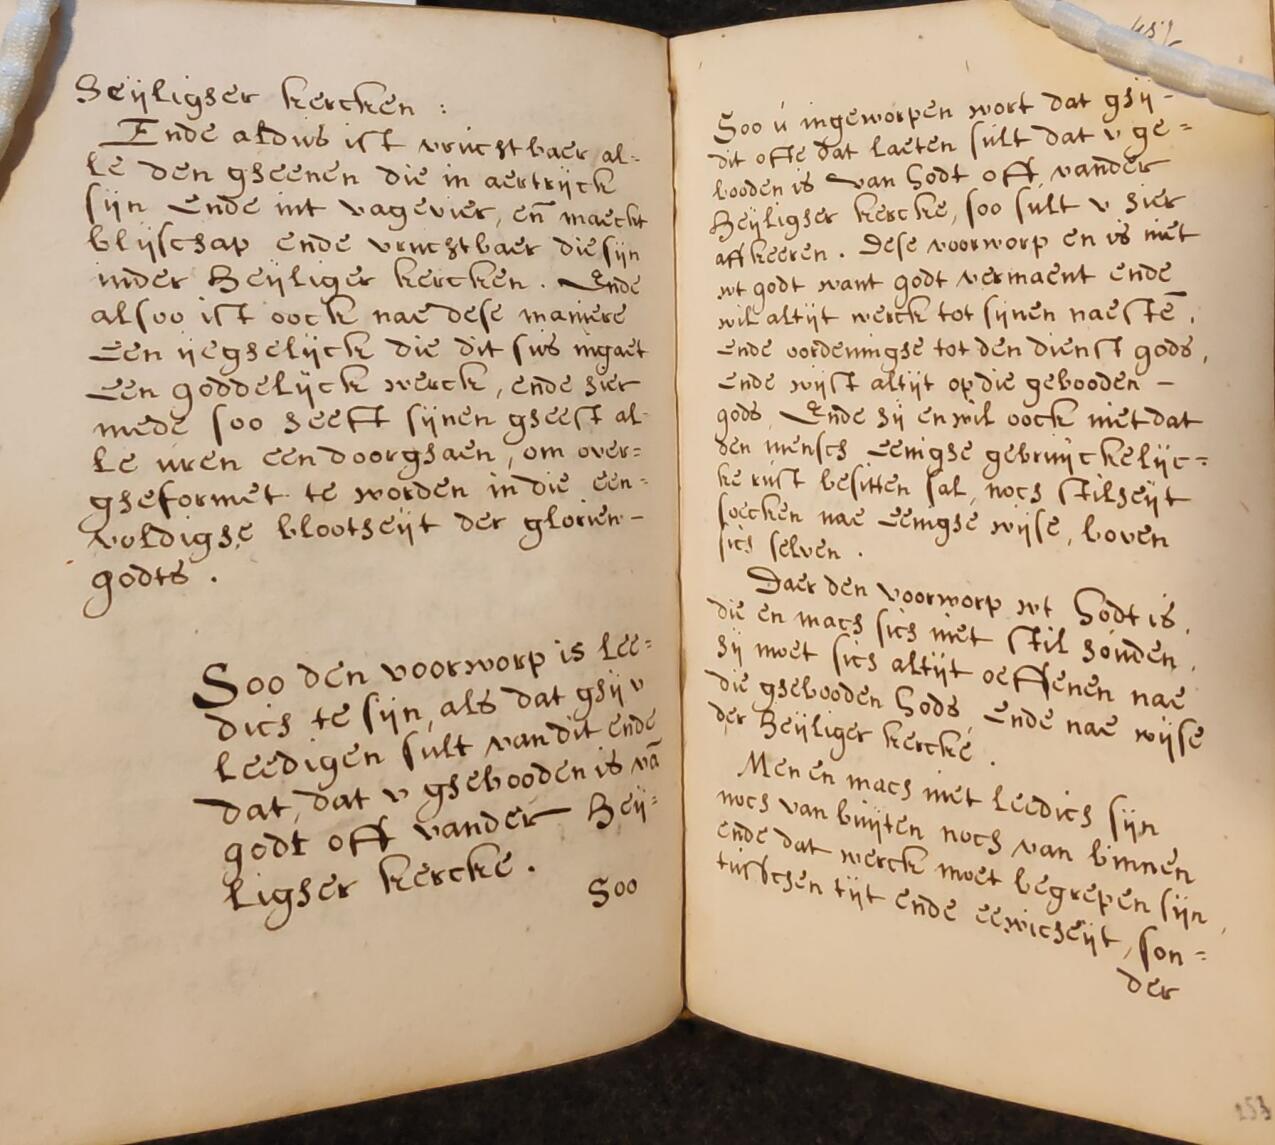 heijligher kercken :
Ende aldus ist vruchtbaer al=
le den gheenen die in aertrijck
sijn ende int vagevier, en̄ maeckt
blijschap ende vruchtbaer die sijn
inder heijliger kercken. Ende
alsoo ist oock nae dese maniere
een ijeghelijck die dit sus ingaet
een goddelijck werck, ende hier
mede soo heeft sijnen gheest al-
le uren een doorghaen, om over=
gheformet te worden in die een=
voldighe blootheijt der glorien-
godts.
Soo den voorworp is lee=
dich te sijn, als dat ghij v
leedigen sult van dit ende
dat, dat v ghebooden is vā
godt off vander heij=
ligher kercke.
Soo
Soo ú ingeworpen wort dat ghij-
dit offe dat laeten sult dat v ge=
booden is van Godt off vander
heijligher kercke, soo sult v hier
aff keeren. Dese voorworp en is niet
wt godt want godt vermaent ende
wil altijt werck tot sijnen naestē,
ende vorderinghe tot den dienst gods,
ende wijst altijt op die gebooden -
gods. Ende hij en wil oock niet dat
den mensch eenighe gebruijckelijc=
ke rust besitten sal, noch stilheijt
soecken nae eenighe wijse, boven
sich selven.
Daer den voorworp wt Godt is,
die en mach sich niet stil houden,
hij moet sich altijt oeffenen nae
die ghebooden Gods, ende nae wijse
der heijliger kercke.
Men en mach niet leedich sijn
noch van buijten noch van binnen
ende dat werck moet begrepen sijn,
tusschen tijt ende eewicheijt, son=
der
253